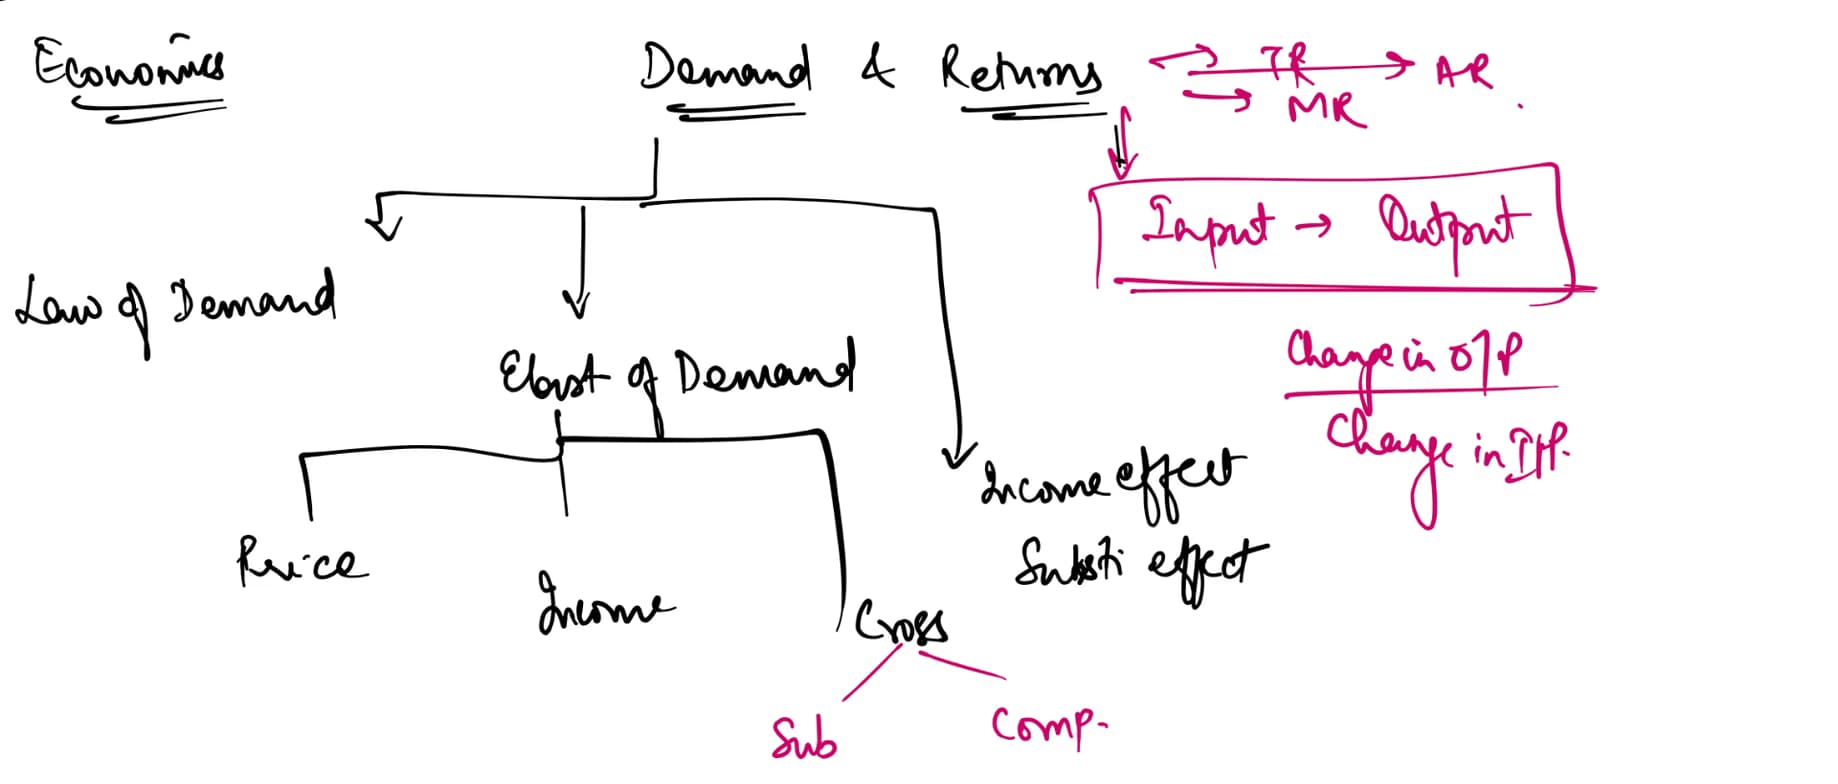 Economics
Demand & Returns
TR
AR
MR
Input → Output
Law of Demand
Change in O/P
Change in I/P.
Elast of Demand
Income effect
Substi effect
Price
Income
Cross
Sub
Comp.